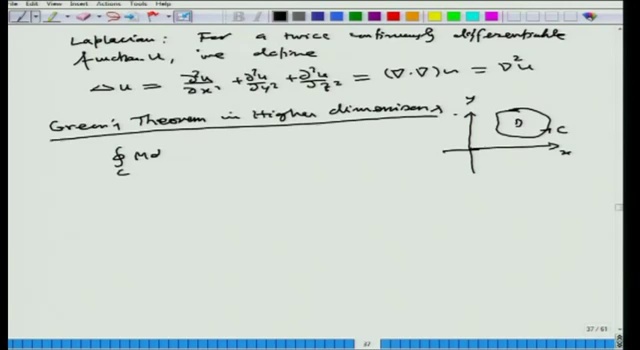 File View Insert Actions Tools Help
Laplacian: For a twice continuously differentiable
function u, we define
Δu = ∂²u/∂x² + ∂²u/∂y² + ∂²u/∂z² = (∇·∇)u = ∇²u
Green's Theorem in Higher dimensions.
y
D
C
x
∮ Md
C
37 / 61
37